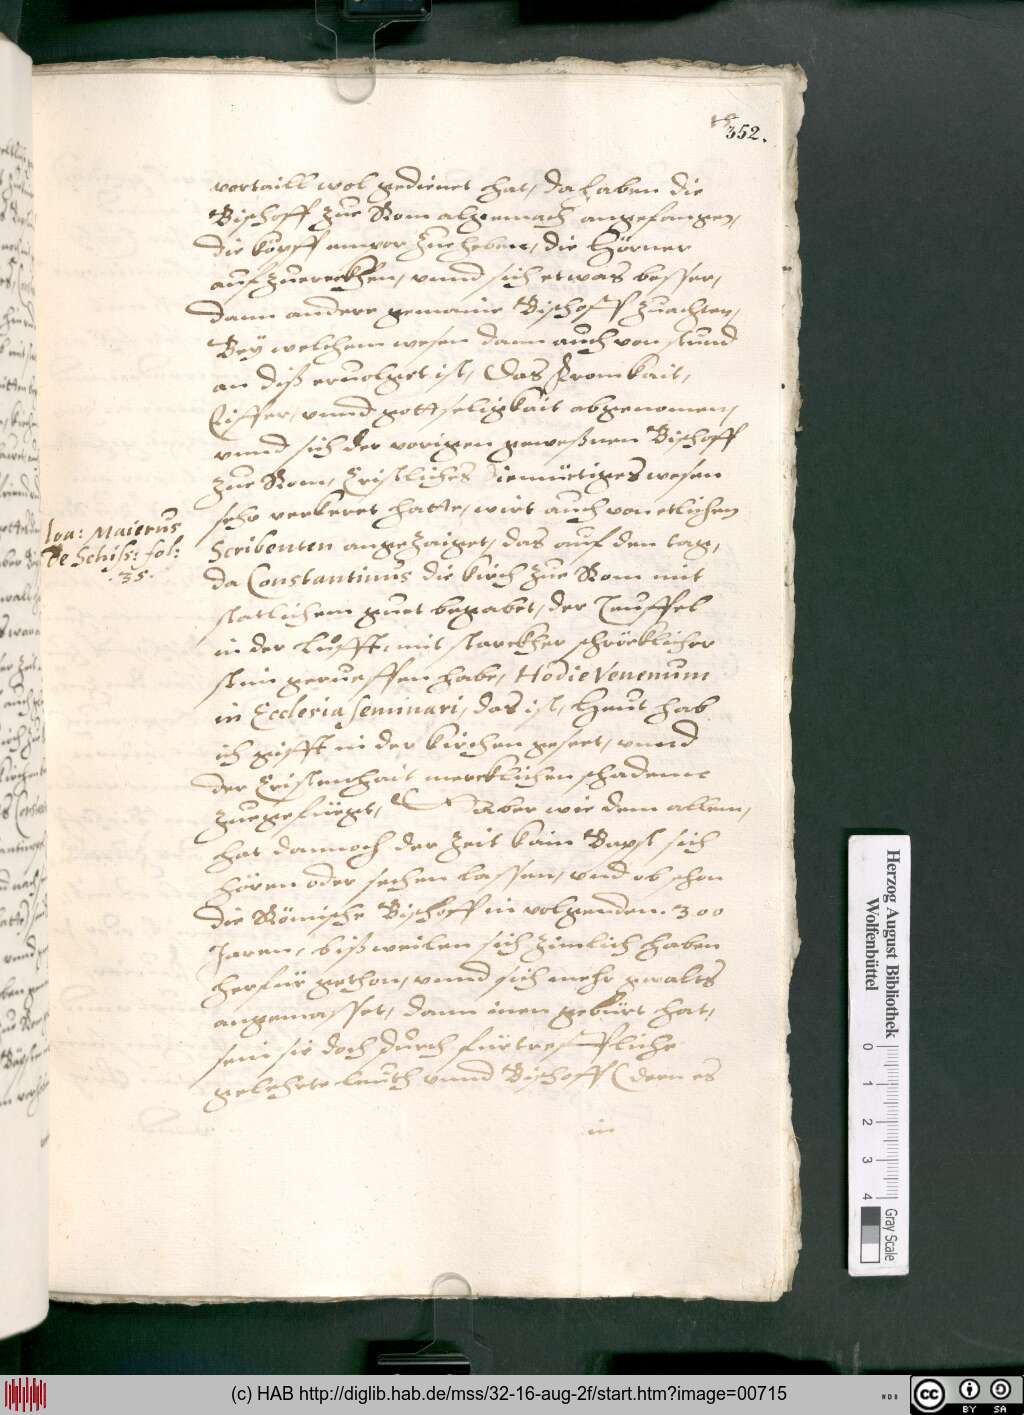 352.
vortaill wol gedienet hat, da haben die
Bischoff zue Rom algemach angefangen,
die köpff empor zueheben, die Hörner
aufzuereckhen, vnnd sich etwas besser,
dann andere gemaine Bischoff zuachten,
Bey welchem wesen dann auch von stund
an diß eruolget ist, Das Fromkait,
Eiffer, vnnd gottseligkait abgenomen,
vnnd sich der vorigen geweßnen Bischoff
zue Rom, Cristliches diemüetiges wesen
sehr verkeret hatte, wirt auch von etlichen
Scribenten angezaiget, das auf den tag,
da Constantinus die kirch zue Rom mit
statlichem guet begabet, der Teuffel
in der Lufft, mit starckher schröcklicher
stim gerueffen habe, Hodie Venenum
in Ecclesia seminari, das ist, Heut hab
ich gifft in der kirchen geseet, vnnd
der Cristenhait mercklichen schaden
zuegefüegt, Aber wie dem allem,
hat dannoch der Zeit kain Bapst sich
hören oder sechen lassen, vnd ob schon
die Römische Bischoff in volgenden 300
Jaren, bißweilen sich zimlich haben
herfür gethon, vnnd sich mehr gwalts
angemasset, dann inen gebürt hat,
sein sie doch durch fürtreffliche
gelehrte leuth vnnd Bischoff (deren es
in
Ioa: Maierus
De Schiss: fol:
.35.
Herzog August Bibliothek
Wolfenbüttel
0 1 2 3 4
Gray Scale
(c) HAB http://diglib.hab.de/mss/32-16-aug-2f/start.htm?image=00715
WDB
cc BY SA